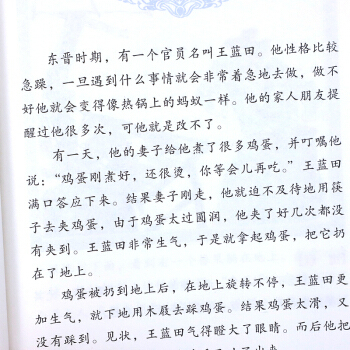 东晋时期，有一个官员名叫王蓝田。他性格比较
急躁，一旦遇到什么事情就会非常着急地去做，做不
好他就会变得像热锅上的蚂蚁一样。他的家人朋友提
醒过他很多次，可他就是改不了。
有一天，他的妻子给他煮了很多鸡蛋，并叮嘱他
说：“鸡蛋刚煮好，还很烫，你等会儿再吃。”王蓝田
满口答应下来。结果妻子刚走，他就迫不及待地用筷
子去夹鸡蛋，由于鸡蛋太过圆润，他夹了好几次都没
有夹到。王蓝田非常生气，于是就拿起鸡蛋，把它扔
在了地上。
鸡蛋被扔到地上后，在地上旋转不停，王蓝田更
加生气，就下地用木屐去踩鸡蛋。结果鸡蛋太滑，又
没有踩到。见状，王蓝田气得瞪大了眼睛。而后他把